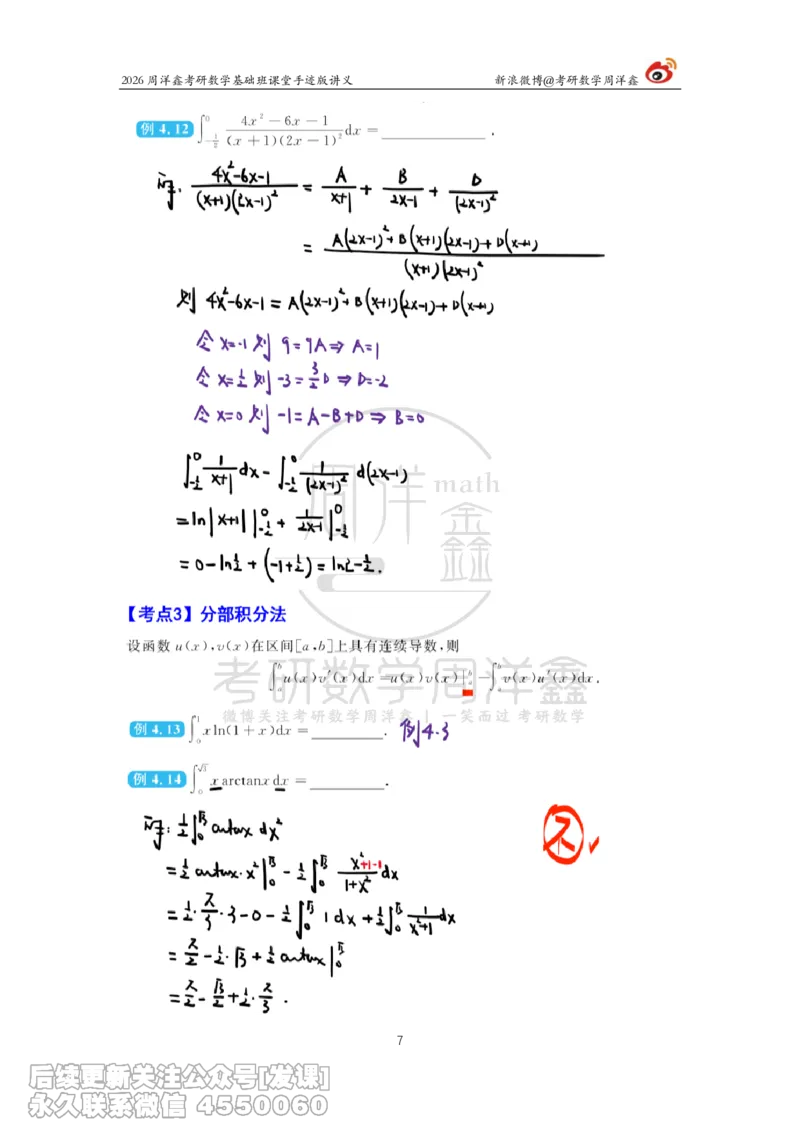 2026 周洋鑫考研数学基础班课堂手迹版讲义 新浪微博@考研数学周洋鑫
例 4.12 ∫_{-1/2}^{0} (4x²-6x-1)/((x+1)(2x-1)²) dx = ________ .
解: (4x²-6x-1)/((x+1)(2x-1)²) = A/(x+1) + B/(2x-1) + D/(2x-1)²
= (A(2x-1)²+B(x+1)(2x-1)+D(x+1))/((x+1)(2x-1)²)
则 4x²-6x-1 = A(2x-1)²+B(x+1)(2x-1)+D(x+1)
令 x=-1 则 9=9A ⇒ A=1
令 x=1/2 则 -3=3/2 D ⇒ D=-2
令 x=0 则 -1=A-B+D ⇒ B=0
∫_{-1/2}^{0} 1/(x+1) dx - ∫_{-1/2}^{0} 1/(2x-1)² d(2x-1)
= ln|x+1| |_{-1/2}^{0} + 1/(2x-1) |_{-1/2}^{0}
= 0-ln1/2 + (-1+1/2) = ln2-1/2.
周洋鑫 math
【考点3】分部积分法
设函数 u(x),v(x)在区间[a,b]上具有连续导数,则
∫_{a}^{b} u(x)v′(x)dx = u(x)v(x)|_{a}^{b} - ∫_{a}^{b} v(x)u′(x)dx.
考研数学周洋鑫
微博关注考研数学周洋鑫 | 一笑而过 考研数学
例 4.13 ∫_{0}^{1} xln(1+x)dx = ________ . 例4.3
例 4.14 ∫_{0}^{√3} x arctanx dx = ________ .
解: 1/2 ∫_{0}^{√3} arctanx dx²
= 1/2 arctanx·x² |_{0}^{√3} - 1/2 ∫_{0}^{√3} (x²+1-1)/(1+x²) dx
= 1/2·π/3·3-0-1/2 ∫_{0}^{√3} 1dx + 1/2 ∫_{0}^{√3} 1/(x²+1) dx
= π/2 - 1/2·√3 + 1/2 arctanx |_{0}^{√3}
= π/2 - √3/2 + 1/2·π/3 .
7
后续更新关注公众号[发课]
永久联系微信 4550060